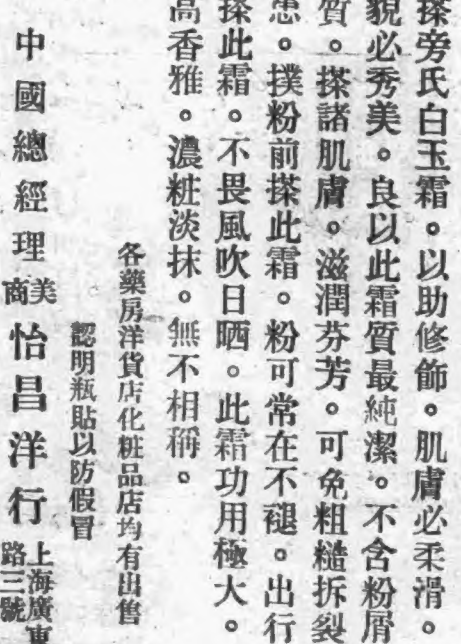 搽旁氏白玉霜。以助修飾。肌膚必柔滑。
貌必秀美。良以此霜質最純潔。不含粉屑
質。搽諸肌膚。滋潤芬芳。可免粗糙拆裂
患。撲粉前搽此霜。粉可常在不褪。出行
搽此霜。不畏風吹日晒。此霜功用極大。
高香雅。濃粧淡抹。無不相稱。
各藥房洋貨店化粧品店均有出售
認明瓶貼以防假冒
中國總經理美商怡昌洋行上海廣東路三號